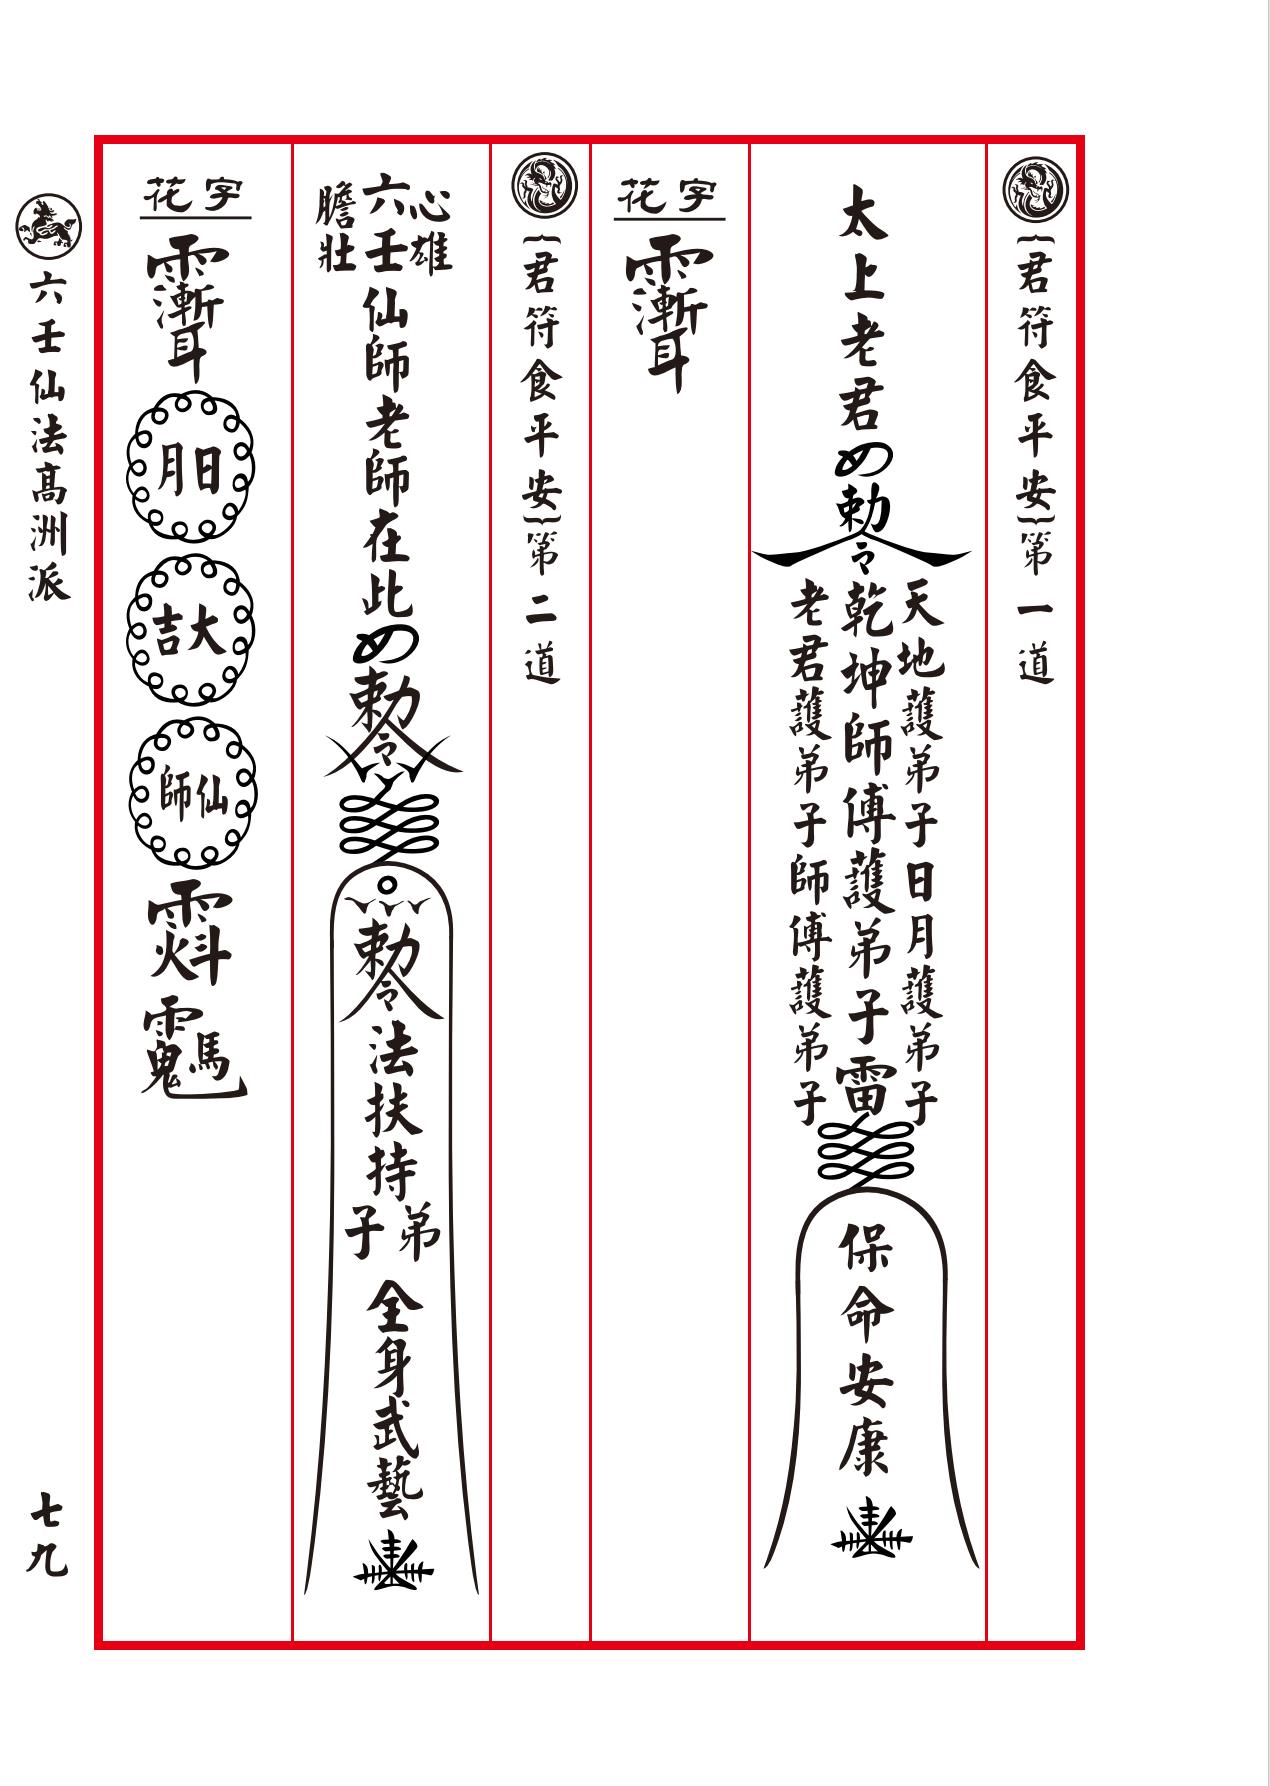 ︷君符食平安︸第一道
太上老君
勅令
天地護弟子日月護弟子
乾坤師傅護弟子雷
老君護弟子師傅護弟子
保命安康
花字
︷君符食平安︸第二道
心雄
六壬仙師老師在此
膽壯
勅令
勅令
法扶持
弟子
全身武藝
花字
日月
大吉
仙師
六壬仙法髙洲派
七九